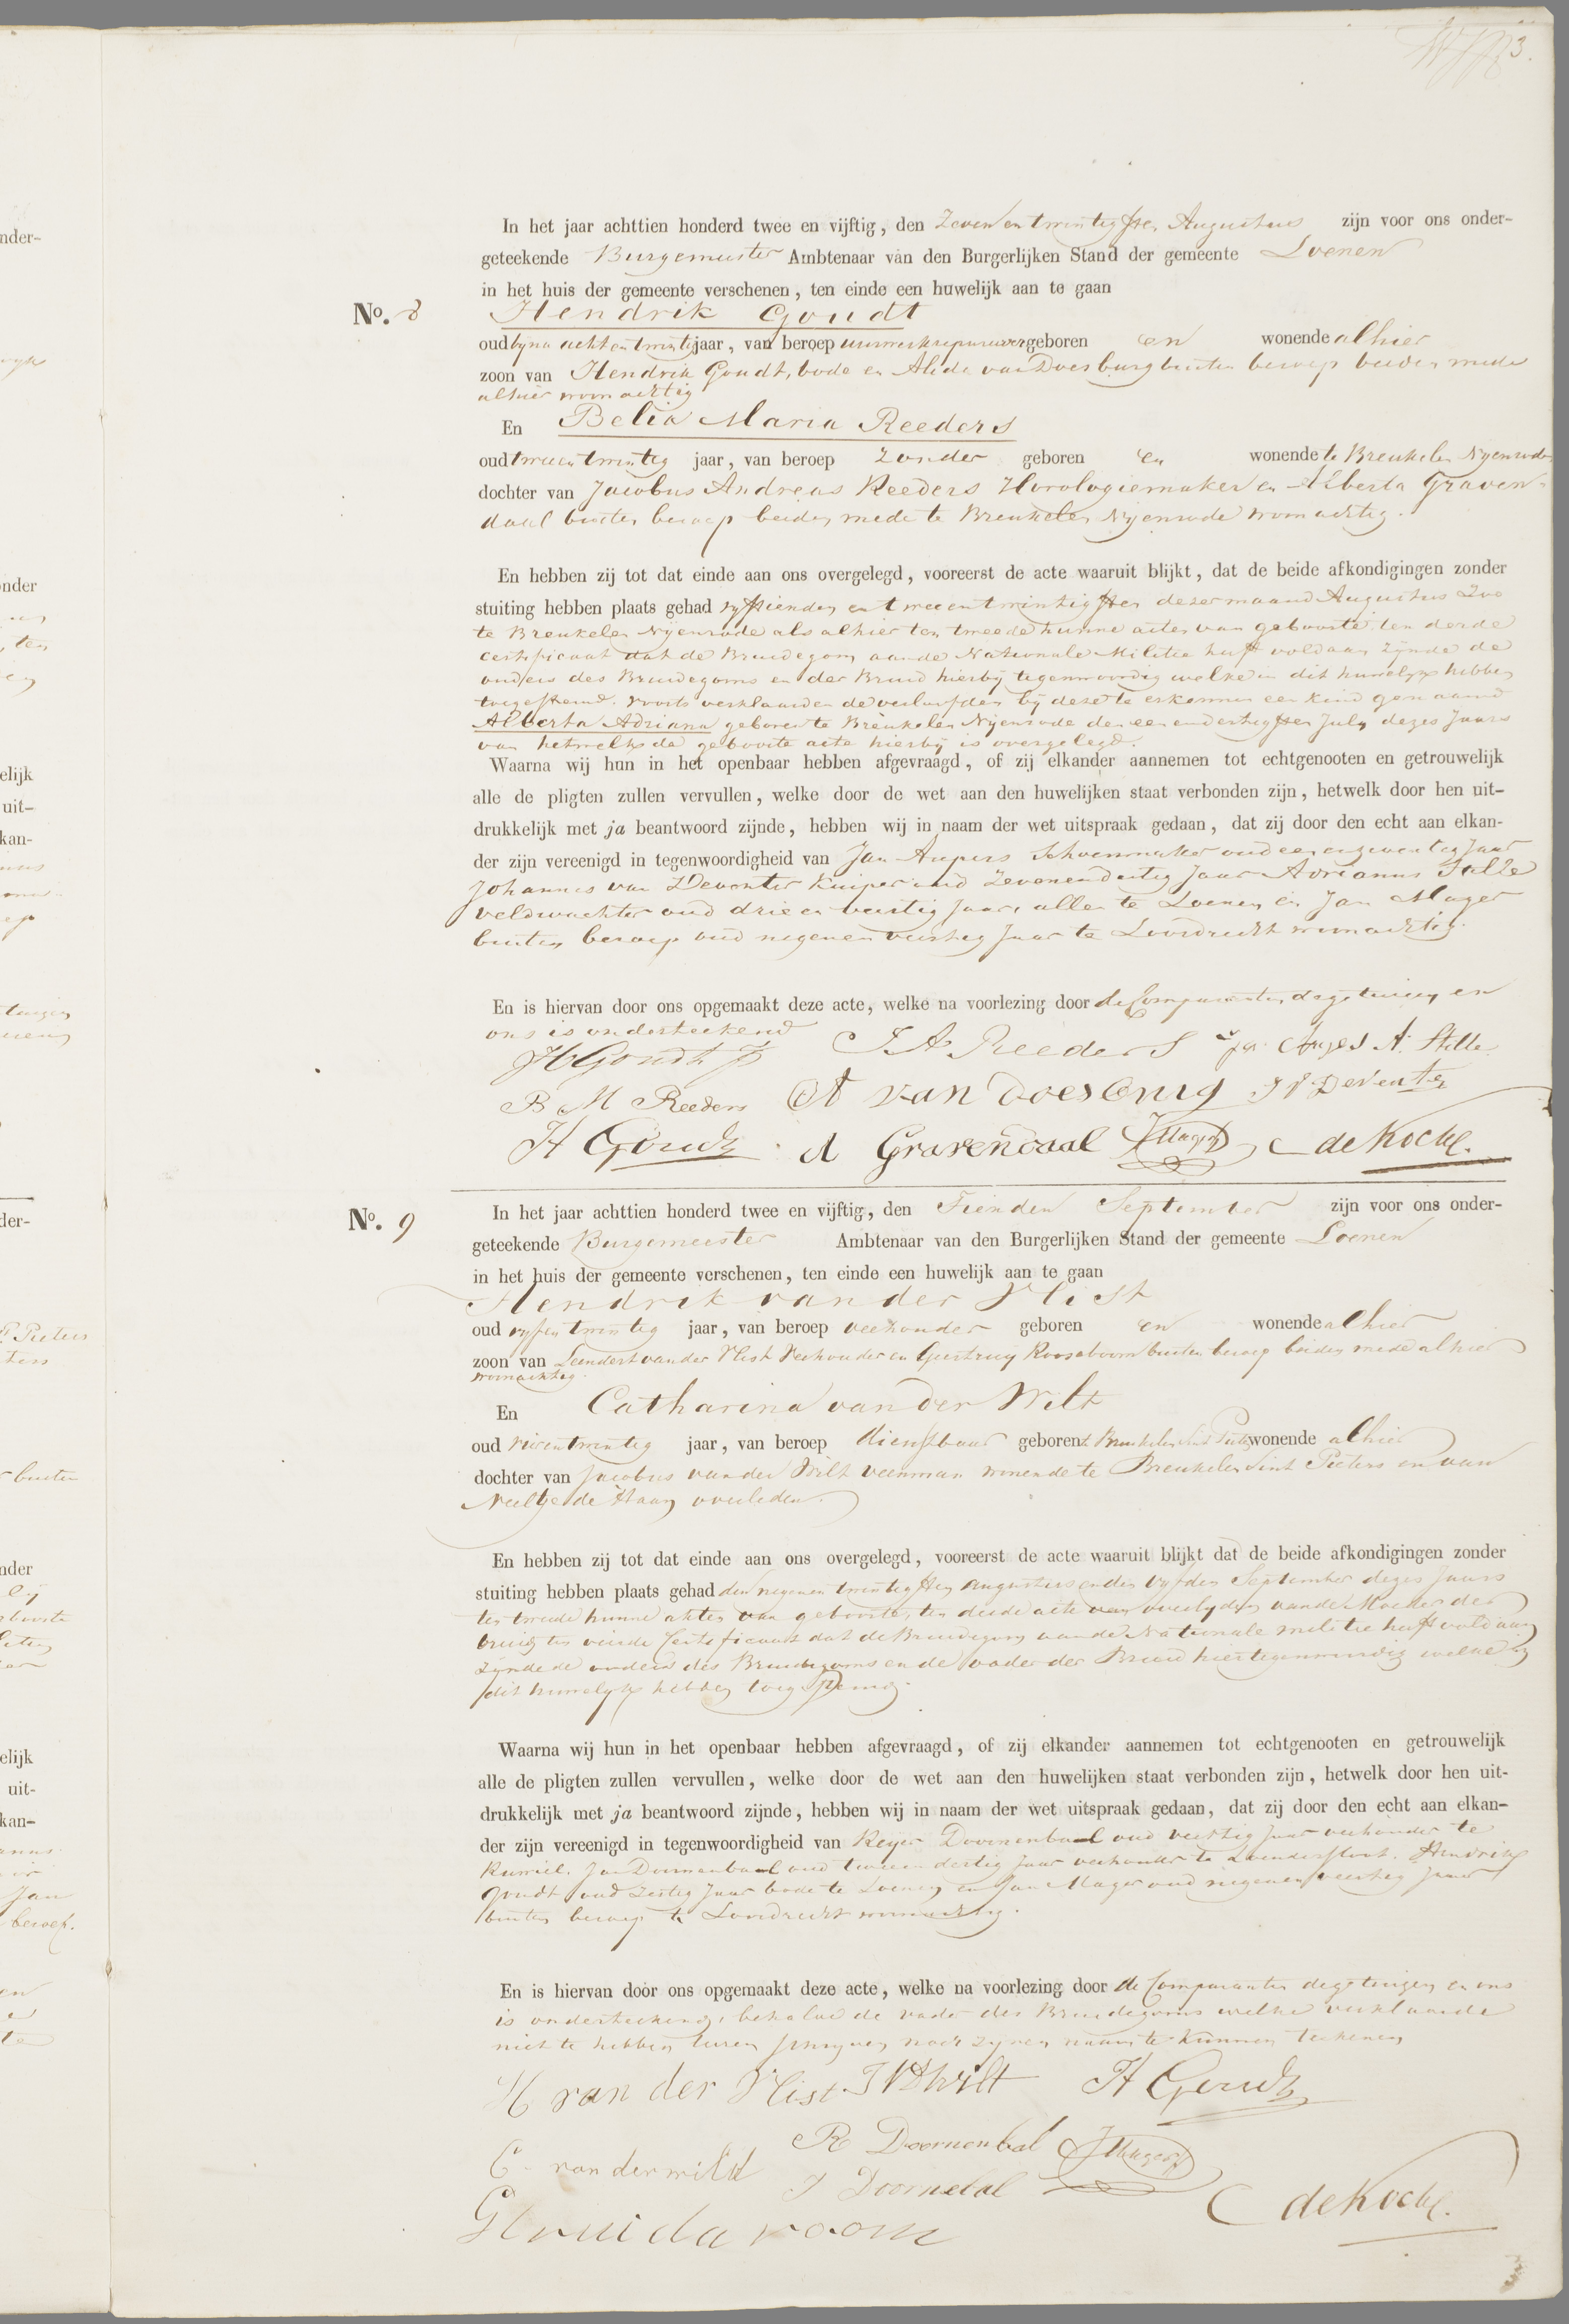 3.
In het jaar achttien honderd twee en vijftig, den Zeven en twintigsten Augustus zijn voor ons onder-
geteekende Burgemeester Ambtenaar van den Burgerlijken Stand der gemeente Loenen
in het huis der gemeente verschenen, ten einde een huwelijk aan te gaan
No. 8 Hendrik Goudt
oud byna acht en twintig jaar, van beroep geboren en wonende alhier
zoon van Hendrik Goudt, bode en Alida van Doesburg buiten beroep beiden mede
alhier woonachtig
En Belia Maria Reeders
oud twee en twintig jaar, van beroep zonder geboren en wonende te Breukelen Nyenrode
dochter van Jacobus Andreas Reeders Horologiemaker en Alberta Graven-
daal buiten beroep beiden mede te Breukelen Nyenrode woonachtig.
En hebben zij tot dat einde aan ons overgelegd, vooreerst de acte waaruit blijkt, dat de beide afkondigingen zonder
stuiting hebben plaats gehad vyftienden en twee en twintigsten dezer maand Augustus Zoo
te Breukelen Nyenrode als alhier ten tweede hunne acten van geboorte, ten derde
certificaat dat de Bruidegom aan de Nationale Militie heeft voldaan zynde de
ouders des Bruidegoms en der Bruid hierby tegenwoordig welke in dit huwelyk hebben
toegestemd. voorts verklaarden de verloofden by deze te erkennen een kind genaamd
Alberta Adriana geboren te Breukelen Nyenrode den een en dertigsten July dezes Jaars
van hetwelk de geboorte acte hierby is overgelegd.
Waarna wij hun in het openbaar hebben afgevraagd, of zij elkander aannemen tot echtgenooten en getrouwelijk
alle de pligten zullen vervullen, welke door de wet aan den huwelijken staat verbonden zijn, hetwelk door hen uit-
drukkelijk met ja beantwoord zijnde, hebben wij in naam der wet uitspraak gedaan, dat zij door den echt aan elkan-
der zijn vereenigd in tegenwoordigheid van Jan Schoenmaker oud een en zeventig Jaar
Johannes van Deventer Kuiper oud Zevenendertig Jaar Adrianus
veldwachter oud drie en veertig Jaar, allen te Loenen en Jan Mager
buiten beroep oud negen en veertig Jaar te Loosdrecht woonachtig.
En is hiervan door ons opgemaakt deze acte, welke na voorlezing door de Comparanten de getuigen en
ons is onderteekend
H Goudt Jr J A Reeders
B M Reeders A van Doesburg J V Deventer
H Goudt A Gravendaal J Mager C de Kock.
No. 9 In het jaar achttien honderd twee en vijftig, den Tienden September zijn voor ons onder-
geteekende Burgemeester Ambtenaar van den Burgerlijken Stand der gemeente Loenen
in het huis der gemeente verschenen, ten einde een huwelijk aan te gaan
Hendrik van der Vlist
oud vyf en twintig jaar, van beroep veehouder geboren en wonende alhier
zoon van Leendert van der Vlist Veehouder en Geertruy Rooseboom buiten beroep beiden mede alhier
woonachtig.
En Catharina van der Wilt
oud vier en twintig jaar, van beroep dienstbaar geboren te Breukelen Sint Pieters wonende alhier
dochter van Jacobus van der Wilt veenman wonende te Breukelen Sint Pieters en van
Neeltje de Haan overleden.
En hebben zij tot dat einde aan ons overgelegd, vooreerst de acte waaruit blijkt dat de beide afkondigingen zonder
stuiting hebben plaats gehad den negen en twintigsten Augustus en den vyfden September dezes Jaars
ten tweede hunne akten van geboorte, ten derde acte van overlyden van de Moeder der
bruid ten vierde Certificaat dat de Bruidegom aan de Nationale militie heeft voldaan
zynde de ouders des Bruidegoms en de vader der Bruid hier tegenwoordig welke in
dit huwelyk hebben toegestemd.
Waarna wij hun in het openbaar hebben afgevraagd, of zij elkander aannemen tot echtgenooten en getrouwelijk
alle de pligten zullen vervullen, welke door de wet aan den huwelijken staat verbonden zijn, hetwelk door hen uit-
drukkelijk met ja beantwoord zijnde, hebben wij in naam der wet uitspraak gedaan, dat zij door den echt aan elkan-
der zijn vereenigd in tegenwoordigheid van Reyer Doornenbal oud veertig Jaar veehouder te
Ruwiel. Jan Doornenbal oud twee en dertig Jaar veehouder te Loendersloot. Hendrik
Goudt oud zestig Jaar bode te Loenen en Jan Mager oud negen en veertig Jaar
buiten beroep te Loosdrecht woonachtig.
En is hiervan door ons opgemaakt deze acte, welke na voorlezing door de Comparanten de getuigen en ons
is onderteekend, behalve de vader des Bruidegoms welke verklaarde
niet te hebben leeren schryven noch zynen naam te kunnen teekenen
H van der Vlist J VD Wilt H Goudt
R Doornenbal J Mager
C van der wild J Doornebal
C de Kock.